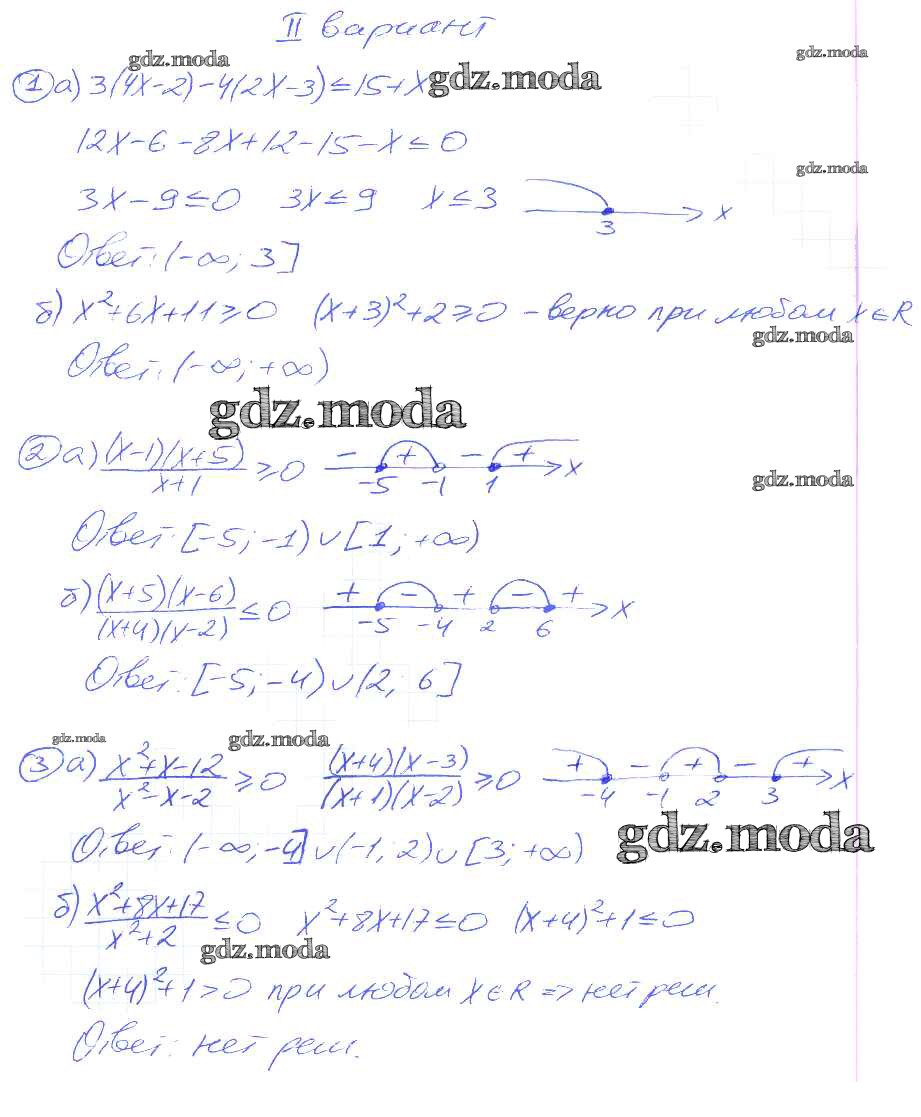 II вариант
gdz.moda gdz.moda
1 а) 3(4x-2)-4(2x-3)≤15+x gdz.moda
12x-6-8x+12-15-x≤0
gdz.moda
3x-9≤0 3x≤9 x≤3 3 x
Ответ: (-∞; 3]
б) x²+6x+11≥0 (x+3)²+2≥0 - верно при любом x∈R
gdz.moda
Ответ: (-∞; +∞)
gdz.moda
2 а) (x-1)(x+5)/x+1 ≥0 - + - + -5 -1 1 x
gdz.moda
Ответ: [-5; -1)∪[1; +∞)
б) (x+5)(x-6)/(x+4)(x-2) ≤0 + - + - + -5 -4 2 6 x
Ответ: [-5; -4)∪(2; 6]
gdz.moda gdz.moda
3 а) x²+x-12/x²-x-2 ≥0 (x+4)(x-3)/(x+1)(x-2) ≥0 + - + - + -4 -1 2 3 x
Ответ: (-∞; -4]∪(-1; 2)∪[3; +∞) gdz.moda
б) x²+8x+17/x²+2 ≤0 x²+8x+17≤0 (x+4)²+1≤0
gdz.moda
(x+4)²+1>0 при любом x∈R => нет реш.
Ответ: нет реш.